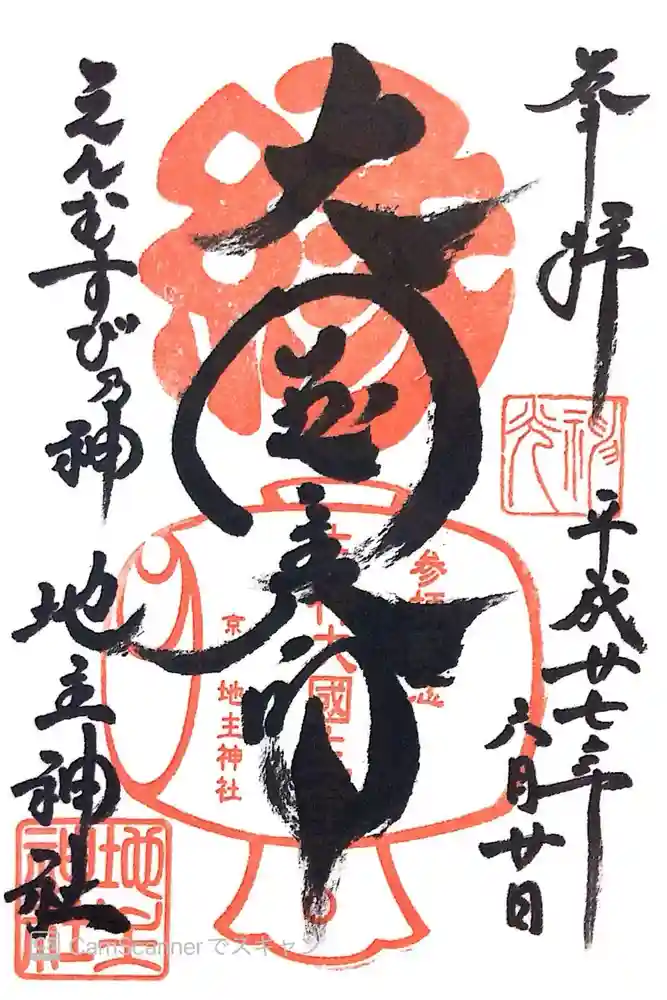 奉拝
平成廿七年
六月廿日
大国主命
えんむすび乃神
地主神社
地主神社
地主神社
CamScanner でスキャン